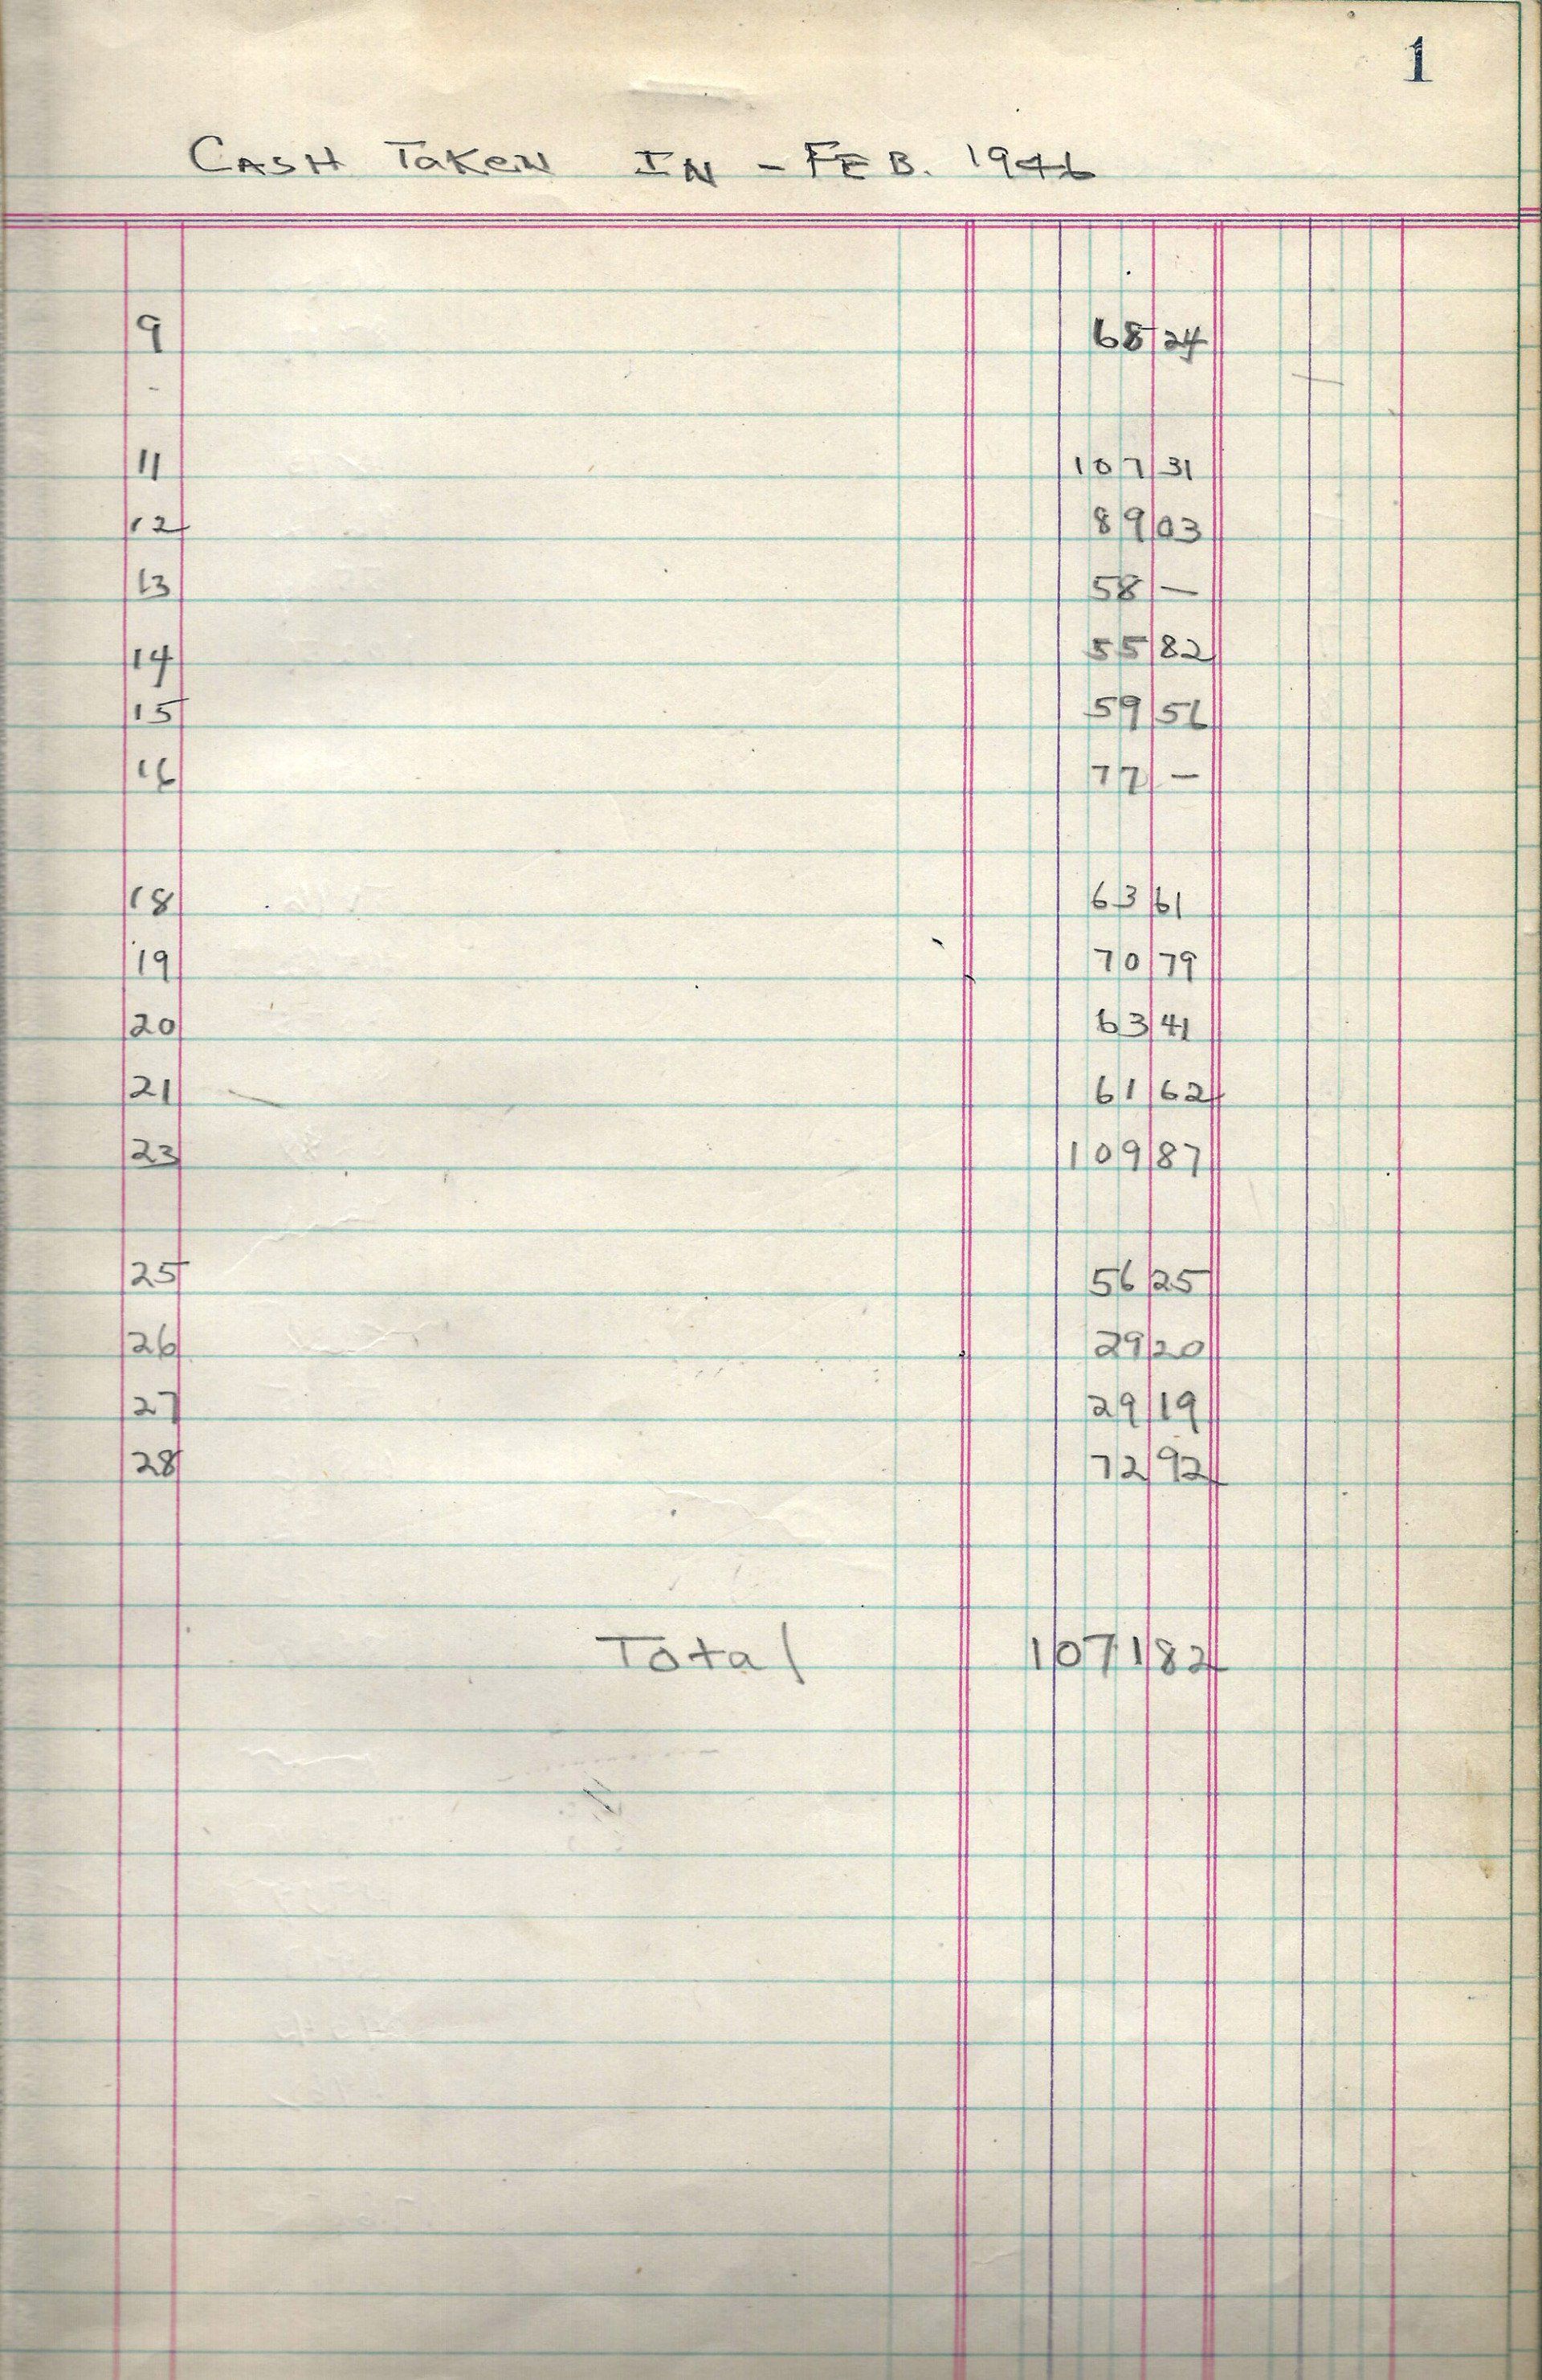 1
CASH TaKeN IN - FEB. 1946
9 68 24
-
11 107 31
12 89 03
13 58 —
14 55 82
15 59 56
16 77 —
18 63 61
19 70 79
20 63 41
21 61 62
23 109 87
25 56 25
26 29 20
27 29 19
28 72 92
Total 1071 82